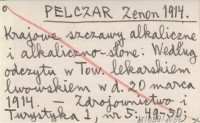 PELCZAR Zenon 1914.
Krajowe szczawy alkaliczne
i alkaliczno-słone: Według
odczytu w Tow. lekarskiem
lwowskiem w d. 20 marca
1914. — Zdrojownictwo i
Turystyka 1, nr 5: 49-50;